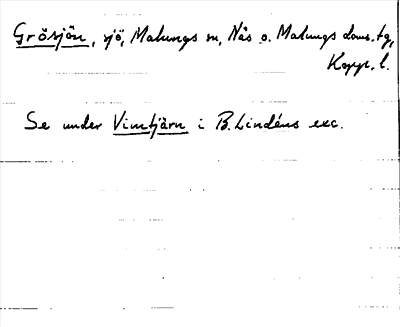 Grösjön, sjö, Malungs sn, Nås o. Malungs doms.tg,
Kopp. l.
Se under Vimtjärn i B. Lindéns exc.